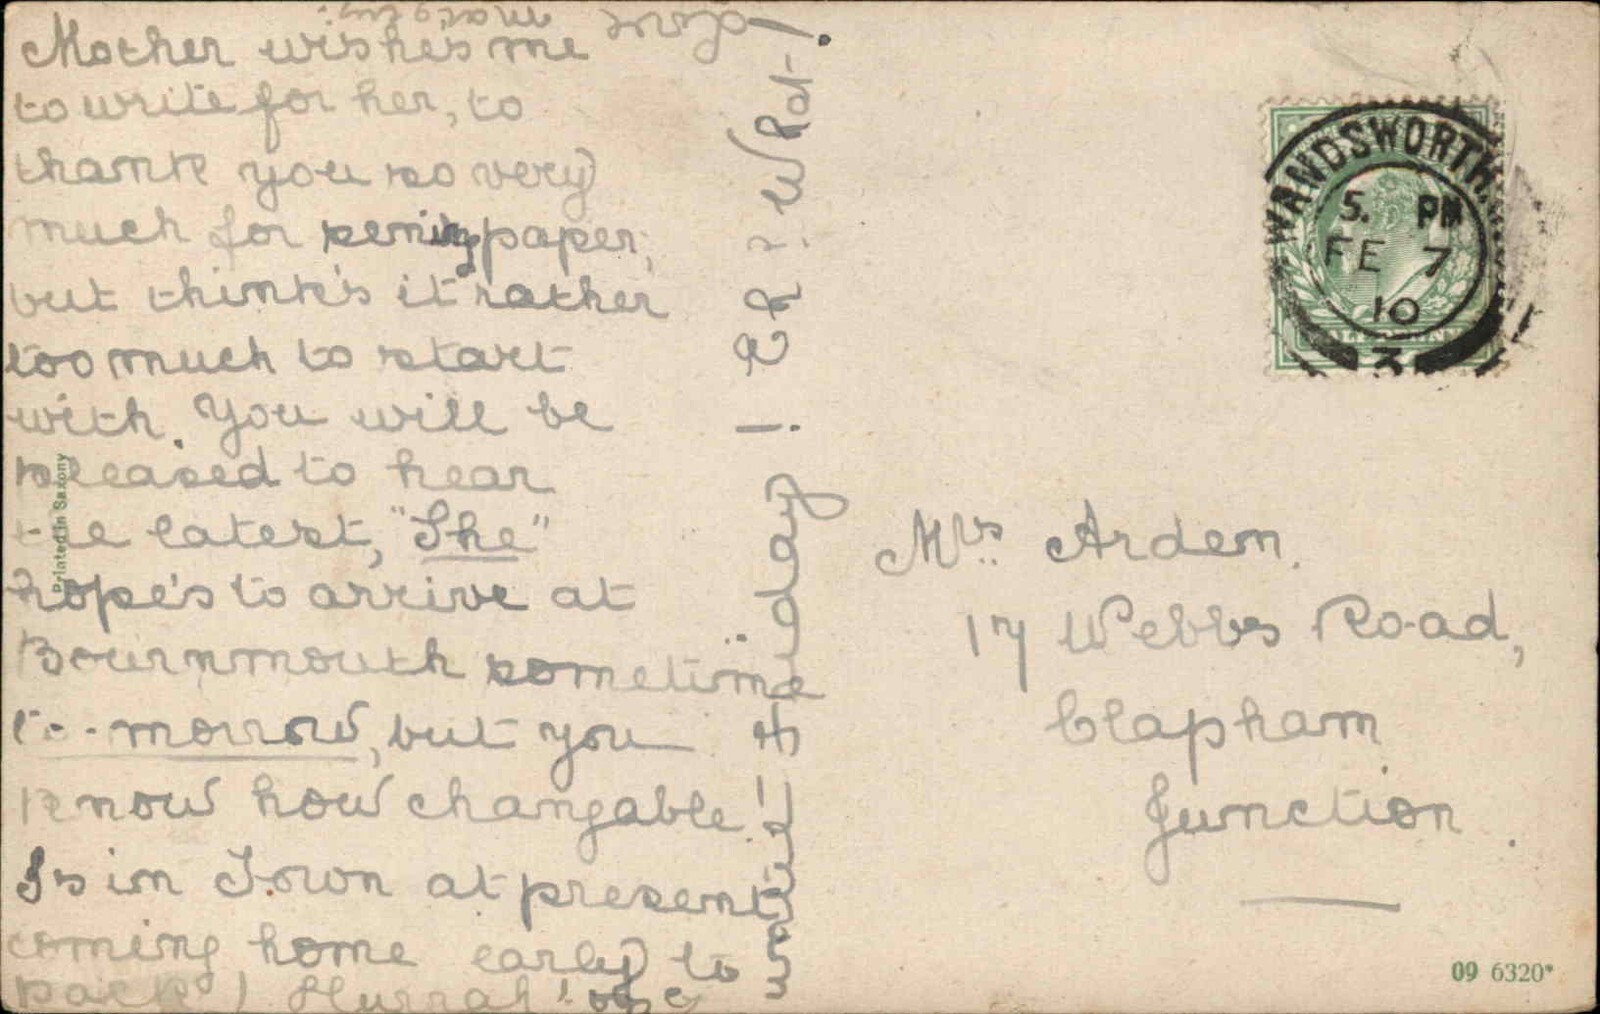 Mother wishes me
to write for her, to
thank you so very
much for penny paper,
but think's it rather
too much to start
with. You will be
pleased to hear
the latest, "She"
hope's to arrive at
Bournmouth sometime
to-morrow, but you
know how changable!
Is in Town at present
coming home early to
pack! Hurrah!
until Friday!. Eh? What-!
dour
Mrs. Ardem.
17 Webbs Road,
Clapham
Junction.
WANDSWORTH
5. PM
FE 7
10
3
HALFPENNY
Printed in Saxony
09 6320*